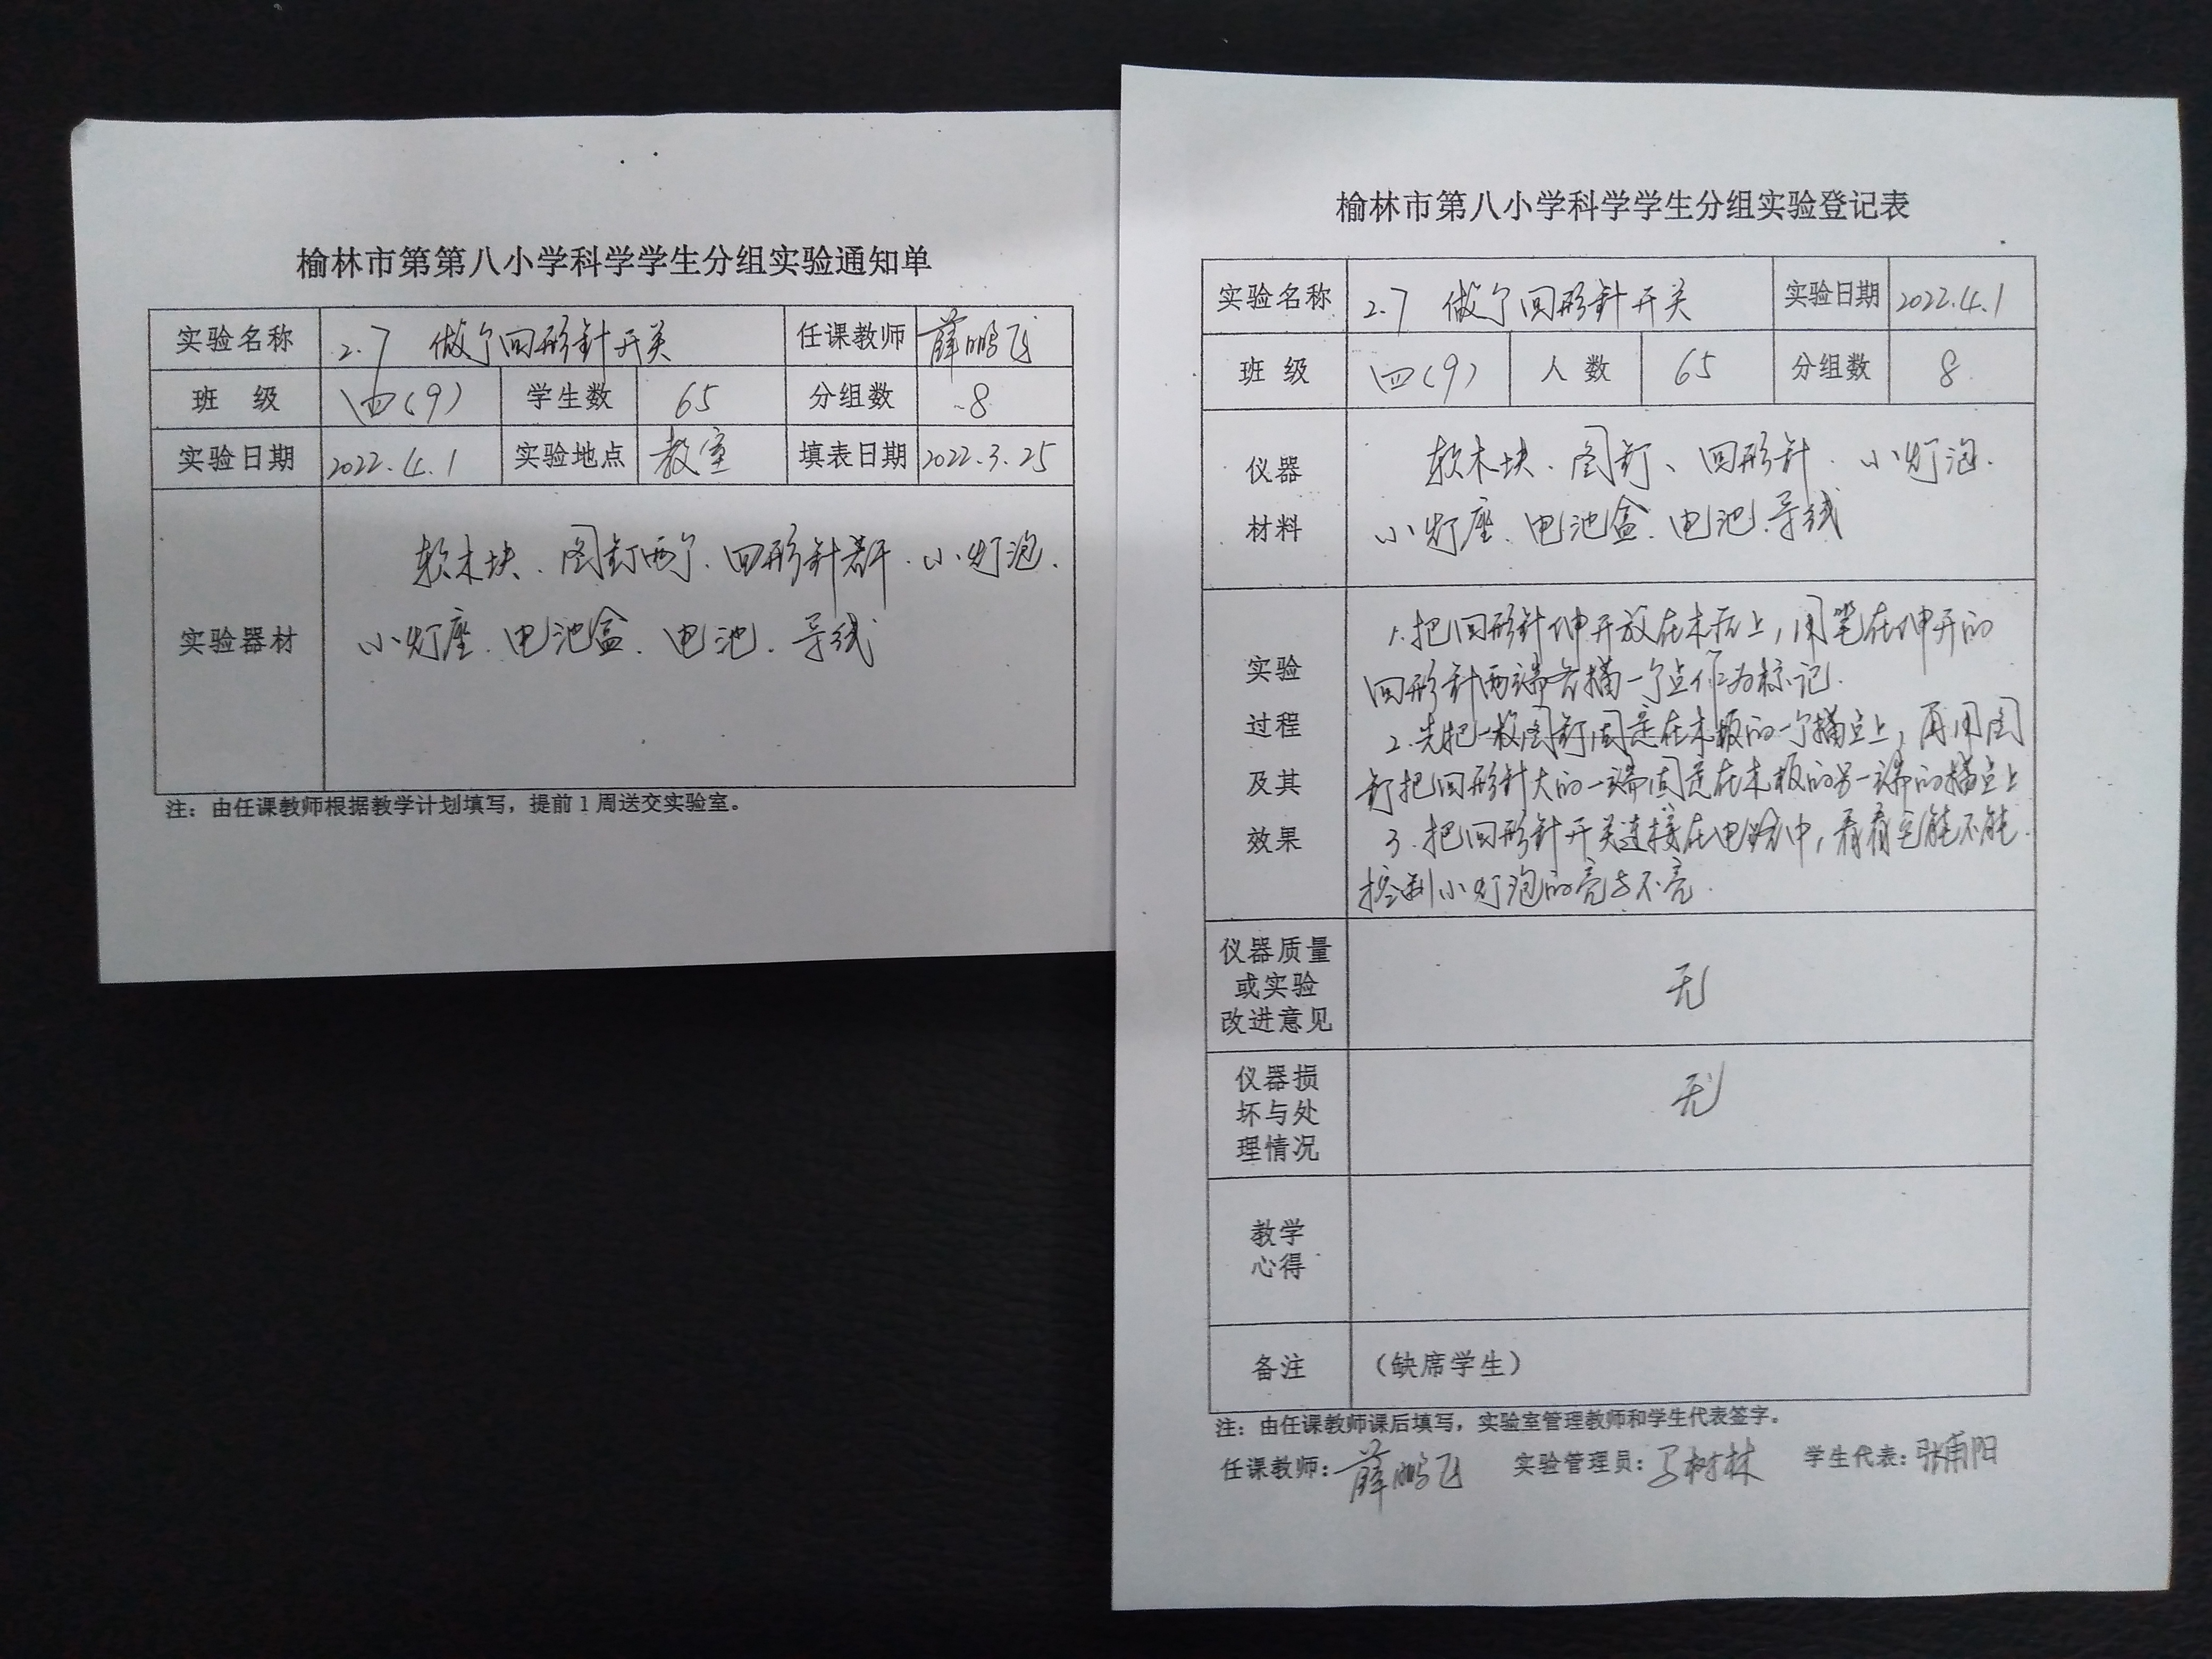 榆林市第第八小学科学学生分组实验通知单
实验名称 2.7 做个回形针开关 任课教师 薛鹏飞
班 级 四(9) 学生数 65 分组数 8
实验日期 2022.4.1 实验地点 教室 填表日期 2022.3.25
实验器材
软木块、图钉两个、回形针若干、小灯泡、
小灯座、电池盒、电池、导线
注：由任课教师根据教学计划填写，提前1周送交实验室。
榆林市第八小学科学学生分组实验登记表
实验名称 2.7 做个回形针开关 实验日期 2022.4.1
班 级 四(9) 人 数 65 分组数 8
仪器
材料
软木块、图钉、回形针、小灯泡、
小灯座、电池盒、电池、导线
实验
过程
及其
效果
1.把回形针伸开放在木板上，用笔在伸开的
回形针两端各描一个点作为标记.
2.先把一枚图钉固定在木板的一个描点上，再用图
钉把回形针大的一端固定在木板的另一端的描点上
3.把回形针开关连接在电路中，看看它能不能
控制小灯泡的亮与不亮.
仪器质量
或实验
改进意见
无
仪器损
坏与处
理情况
无
教学
心得
备注 （缺席学生）
注：由任课教师课后填写，实验室管理教师和学生代表签字。
任课教师：薛鹏飞 实验管理员：马树林 学生代表：张甫阳